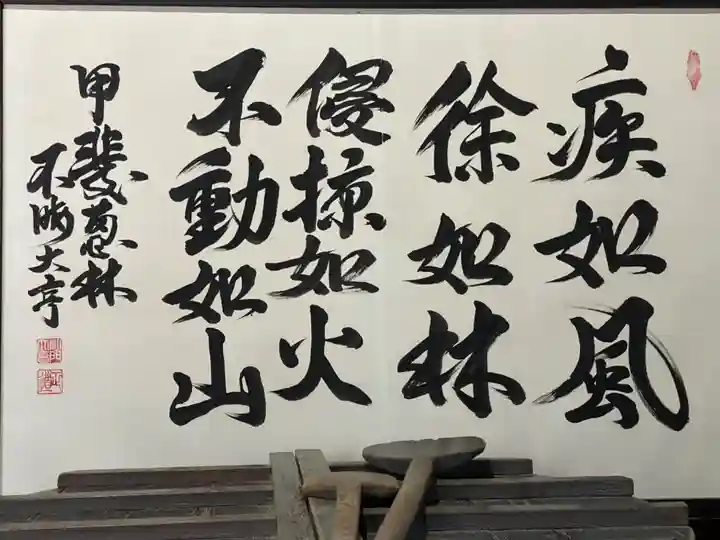 疾如風
徐如林
侵掠如火
不動如山
甲斐恵林
不晦大亨